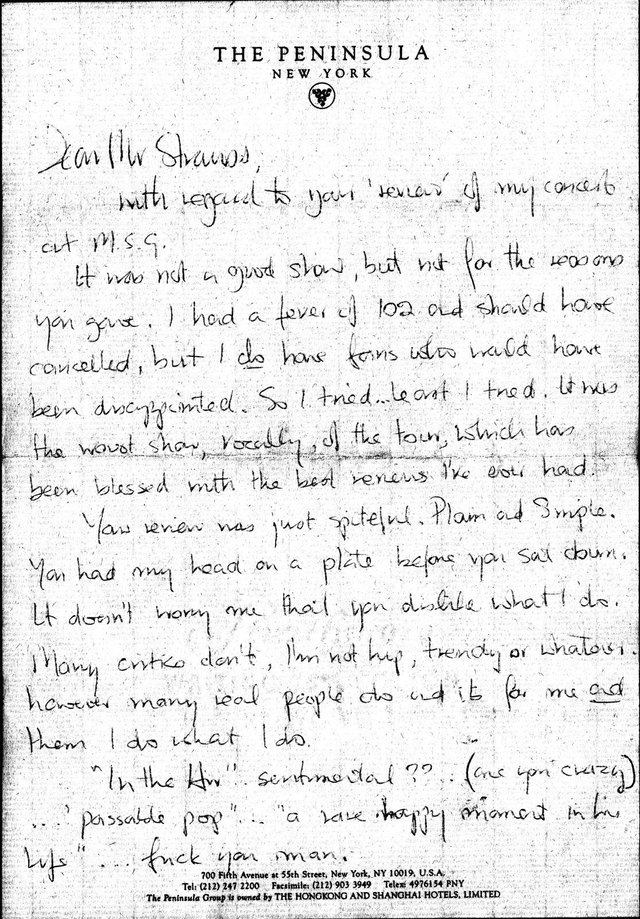 THE PENINSULA
NEW YORK
Dear Mr Strauss,
with regard to your 'review' of my concert
at M.S.G.
It was not a good show, but not for the reasons
you gave. I had a fever of 102 and should have
cancelled, but I do have fans who would have
been disappointed. So I tried...least I tried. It was
the worst show, vocally, of the tour, which has
been blessed with the best reviews I've ever had.
Your review was just spiteful. Plain and Simple.
You had my head on a plate before you sat down.
It doesn't worry me that you dislike what I do.
Many critics don't, I'm not hip, trendy or whatever.
however many real people do and its for me and
them I do what I do.
"In the Air" sentimental ??.. (are you crazy)
...'passable pop"... "a rare happy moment in his
life" ... fuck you man.
700 Fifth Avenue at 55th Street, New York, NY 10019, U.S.A.
Tel: (212) 247 2200 Facsimile: (212) 903 3949 Telex: 4976154 PNY
The Peninsula Group is owned by THE HONGKONG AND SHANGHAI HOTELS, LIMITED